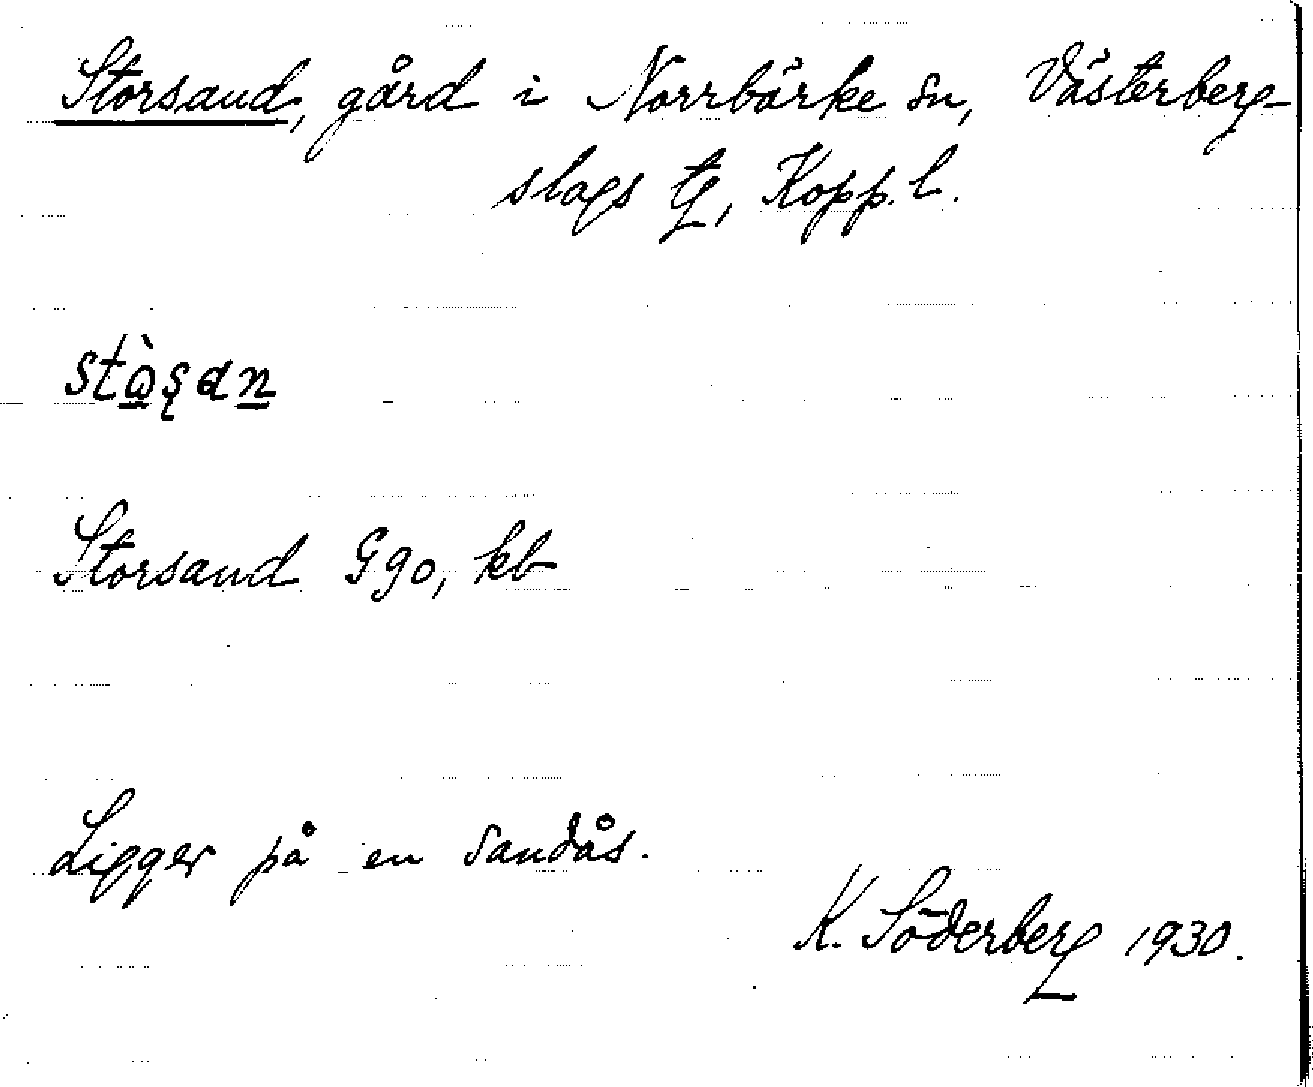 Storsand, gård i Norrbärke sn, Västerberg-
slags tg, Kopp. l.
stò̱ʂaṉ
Storsand Ggo, kb
Ligger på en sandås.
K. Söderberg 1930.